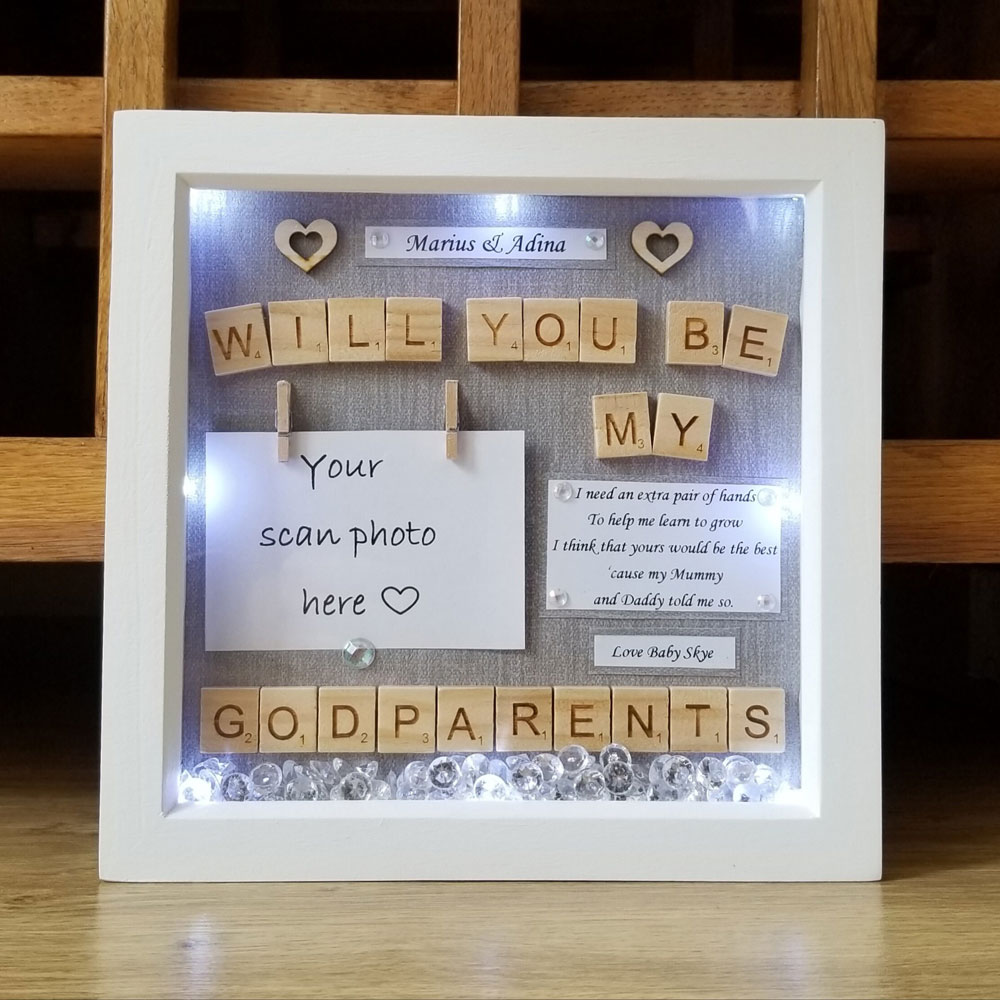 Marius & Adina
WILL YOU BE
MY
Your
scan photo
here ♡
I need an extra pair of hands
To help me learn to grow
I think that yours would be the best
'cause my Mummy
and Daddy told me so.
Love Baby Skye
GODPARENTS